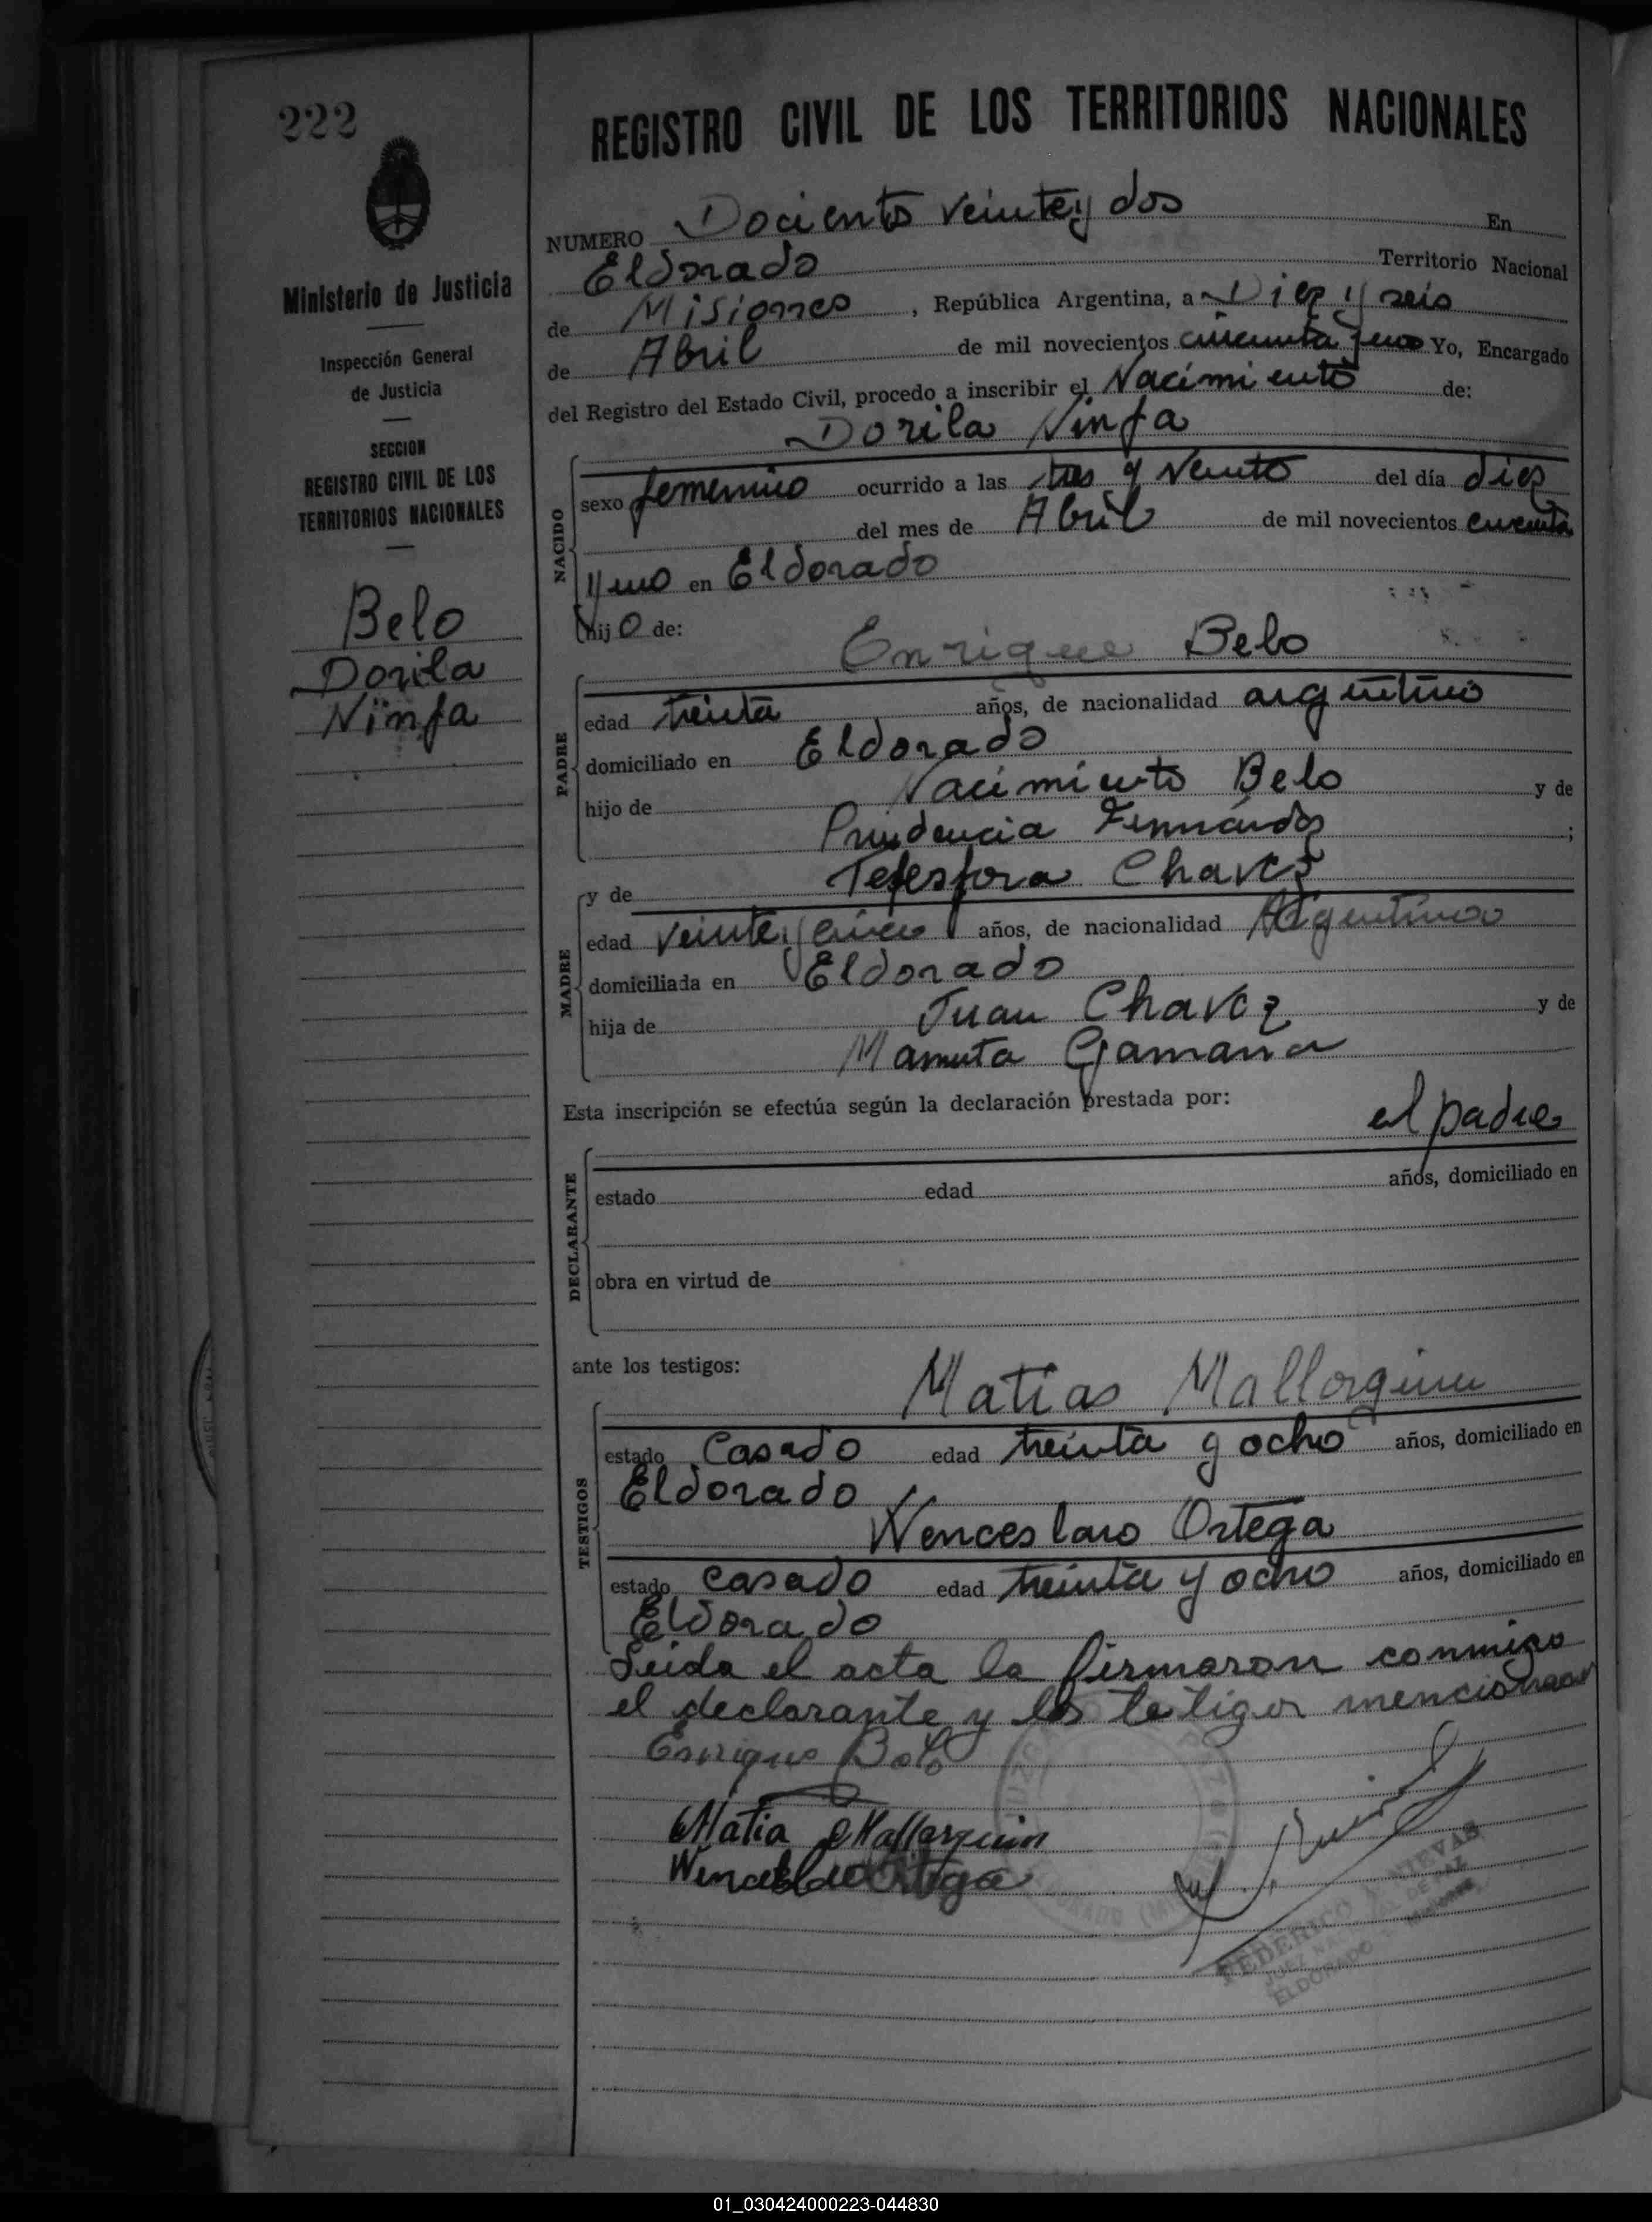 222
REGISTRO CIVIL DE LOS TERRITORIOS NACIONALES
Ministerio de Justicia
Inspección General
de Justicia
SECCION
REGISTRO CIVIL DE LOS
TERRITORIOS NACIONALES
Belo
Dorila
Ninfa
NUMERO Dociento veinte y dos En
Eldorado Territorio Nacional
de Misiones, República Argentina, a Diez y seis
de Abril de mil novecientos cincuenta y uno Yo, Encargado
del Registro del Estado Civil, procedo a inscribir el Nacimiento de:
Dorila Ninfa
NACIDO
sexo femenino ocurrido a las tres y veinte del día diez
del mes de Abril de mil novecientos cincuenta
y uno en Eldorado
hijo de:
Enrique Belo
PADRE
edad treinta años, de nacionalidad argentino
domiciliado en Eldorado
hijo de Nacimiento Belo y de
Prudencia Fernández;
y de Telesfora Chavez
MADRE
edad veinte y cinco años, de nacionalidad Argentina
domiciliada en Eldorado
hija de Juan Chavez y de
Gamarra
Esta inscripción se efectúa según la declaración prestada por:
el padre
DECLARANTE
estado edad años, domiciliado en
obra en virtud de
ante los testigos:
Matias Mallorquin
TESTIGOS
estado Casado edad treinta y ocho años, domiciliado en
Eldorado
Wenceslaro Ortega
estado casado edad treinta y ocho años, domiciliado en
Eldorado
Leida el acta la firmaron conmigo
el declarante y los testigos mencionados
Enrique Belo
Matia Mallorquin
Ortega
FEDERICO NIEVAS
JUEZ NACIONAL DE PAZ
ELDORADO - Misiones
01_030424000223-044830